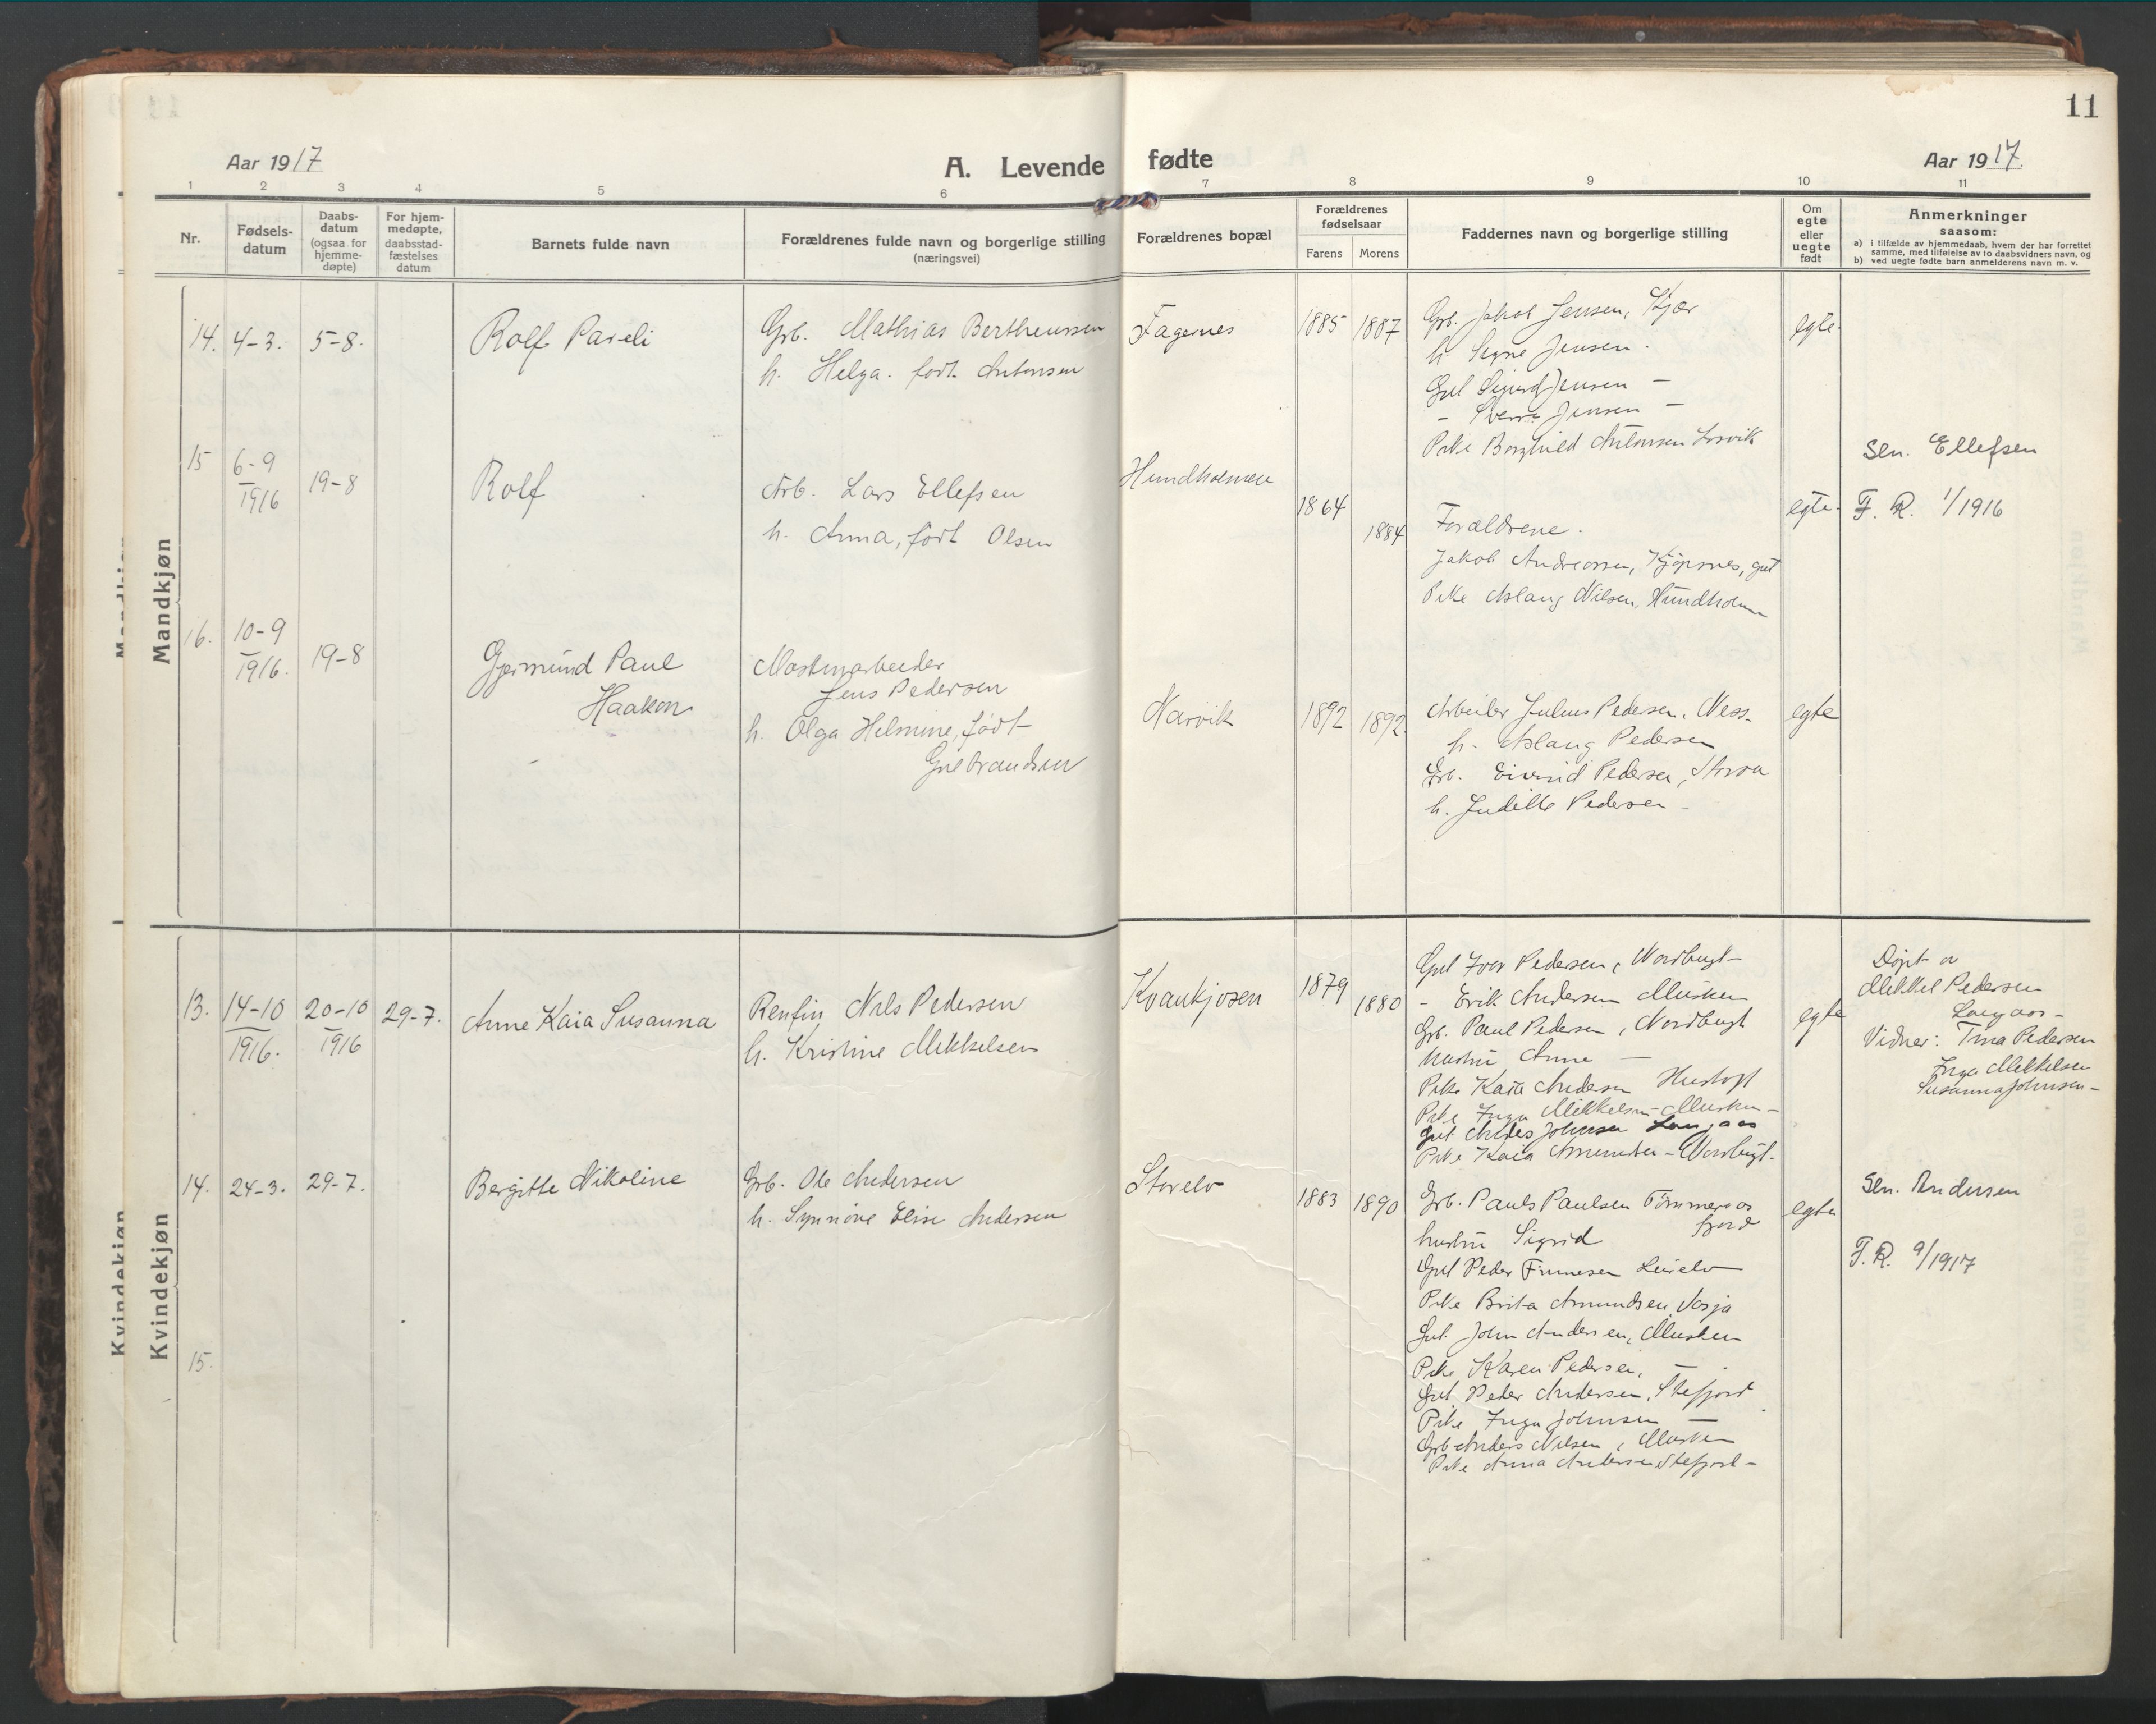 11
Aar 1917
A. Levende fødte
Aar 1917.
1 2 3 4 5 6 7 8 9 10 11
Nr.
Fødsels-
datum
Daabs-
datum
(ogsaa for
hjemme-
døpte)
For hjem-
medøpte,
daabsstad-
fæstelses
datum
Barnets fulde navn
Forældrenes fulde navn og borgerlige stilling
(næringsvei)
Forældrenes bopæl
Forældrenes
fødselsaar
Farens Morens
Faddernes navn og borgerlige stilling
Om
egte
eller
uegte
født
Anmerkninger
saasom:
a) i tilfælde av hjemmedaab, hvem der har forrettet
samme, med tilføielse av to daabsvidners navn, og
b) ved uegte fødte barn anmelderens navn m. v.
Mandkjøn
14. 4-3. 5-8.
Rolf Pareli
Grb. Mathias Bertheussen
h. Helga. født Antonsen
Fagernes
1885 1887
Grb. Jakob Jensen, Kjær
h. Signe Jensen.
Gut Sigurd Jensen —
- Sverre Jensen —
Pike Borghild Antonsen
egte.
15 6-9
1916
19-8
Rolf
Arb. Lars Ellefsen
h. Anna, født Olsen
Hundholmen
1864
1884
Forældrene.
Jakob Andreassen, Kjøpsnes, gut
Pike Aslaug Nilsen, Hundholmen
egte.
Sen. Ellefsen
F. R. 1/1916
16. 10-9
1916.
19-8
Gjermund Paul
Haakon
Jens Pedersen
h. Olga Helmine, født
Gulbrandsen
Narvik
1892 1892.
Arbeider Julius Pedersen, Ness.
h. Aslaug Pedersen
Grb. Eivind Pedersen, Storvoa
h. Judille Pedersen —
egte
Kvindekjøn
13. 14-10
1916.
20-10
1916
29-7.
Anne Kaia Susanna
Renfin Nils Pedersen
h. Kristine Mikkelsen
Kvankjosen
1879
1880
Gut Iver Pedersen, Nordbugt
- Erik Andersen Musken
Grb. Paul Pedersen, Nordbugt
hustru Anne —
Pike Kaia Andersen
Pike Inga Mikkelsen - Musken -
Gut Anders Johnsen Langaas
Pike Kaia Amundsen - Nordbugt.
egte
Døpt av
Mikkel Pedersen
Langaas -
Vidner: Tina Pedersen
Inga Mikkelsen
Susanna Johnsen -
14. 24-3. 29-7.
Bergitte Nikoline
Grb. Ole Andersen
h. Synnöve Elise Andersen
Storelv
1883 1890
Grb. Pauls Paulsen Tömmeraas
fjord
hustru Sigrid
Gut Peder Leirelv
Pike Brita Amundsen,
Gut John Andersen, Musken
Pike Karen Pedersen, —
Gut Peder Andersen, Stefjord
Pike Inga Johnsen —
Grb Anders Nilsen, Musken
Pike Anna Andersen Stefjord -
egte
Sen. Andersen
F. R. 9/1917
15.